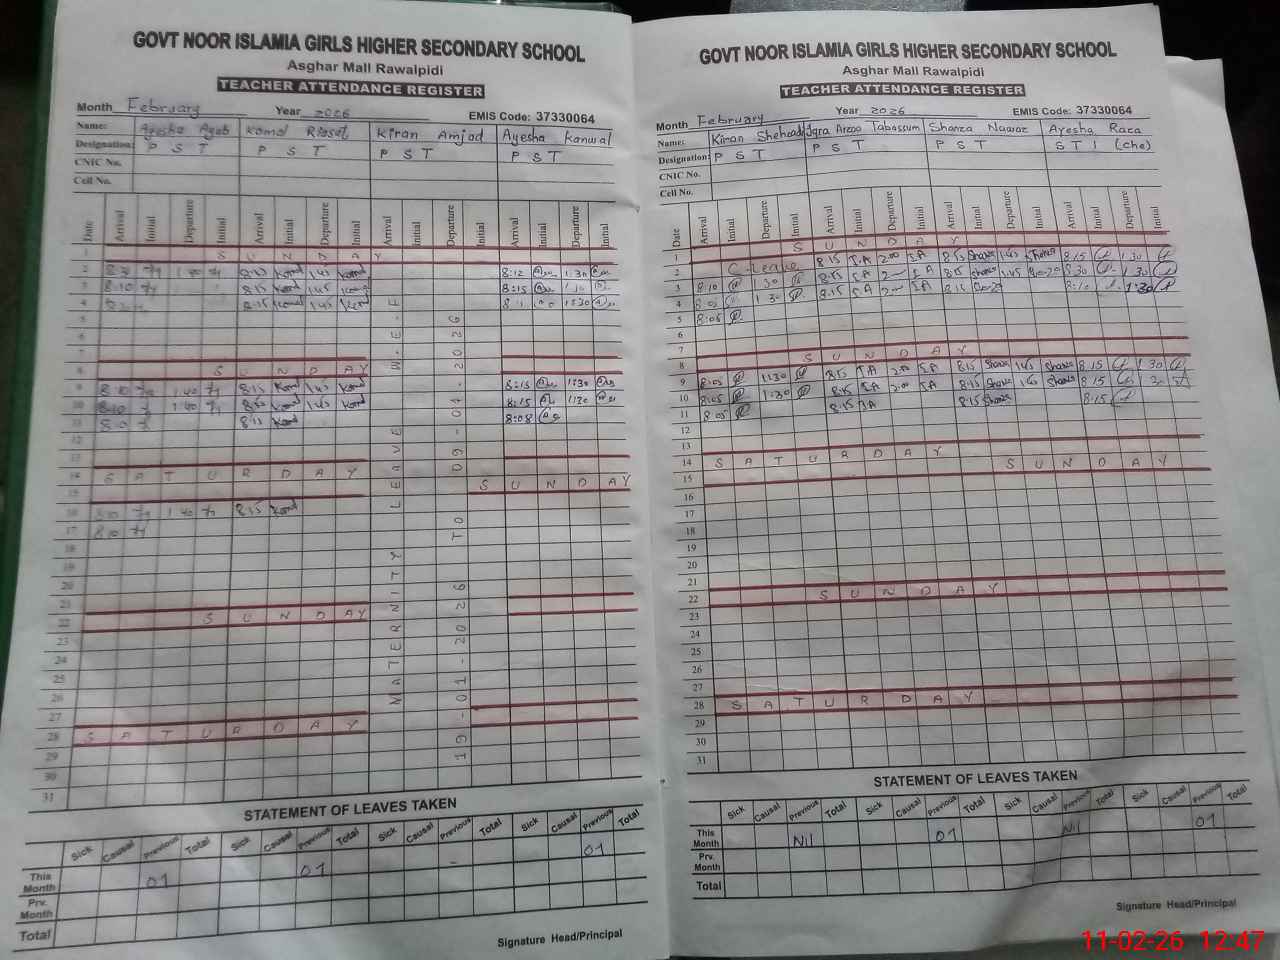 GOVT NOOR ISLAMIA GIRLS HIGHER SECONDARY SCHOOL
Asghar Mall Rawalpidi
TEACHER ATTENDANCE REGISTER
Month February Year 2026 EMIS Code: 37330064
Name: Ayesha Ayub Komal Kiran Amjad Ayesha Kanwal
Designation: P S T P S T P S T P S T
CNIC No.
Cell No.
Date Arrival Initial Departure Initial Arrival Initial Departure Initial Arrival Departure Initial Arrival Initial Departure Initial
1 S U N D A Y
2 1 40 8:15 Komal 1 45 Komal 8:12 1:30
3 8:10 8:15 Komal 1 45 8:15 1:30
4 8:15 Komal 1 45 Komal
5
6
7
8 S U N D A Y
9 8:10 1 40 8:15 Komal 1 45 Komal 8:15 1:30
10 8:10 1 40 Komal 1 45 Komal 8:15 1:30
11 8:10 8:15 Komal 8:08
12
13
14 S A T U R D A Y
15 S U N D A Y
16 8:10 1 40 8:15 Komal
17 8:10
18
19
20
21
22 S U N D A Y
23
24
25
26
27
28 S A T U R D A Y
29
30
31
MATERNITY LEAVE W.E.F
19-01-2026 TO 09-04-2026
STATEMENT OF LEAVES TAKEN
Sick Causal Previous Total Sick Causal Previous Total Sick Causal Previous Total Sick Causal Previous Total
This Month 01 01 - 01
Prv. Month
Total
Signature Head/Principal
GOVT NOOR ISLAMIA GIRLS HIGHER SECONDARY SCHOOL
Asghar Mall Rawalpidi
TEACHER ATTENDANCE REGISTER
Month February Year 2026 EMIS Code: 37330064
Name: Kiran Shehzadi Iqra Arzoo Tabassum Shanza Nawaz Ayesha Raza
Designation: P S T P S T P S T S T I (che)
CNIC No.
Cell No.
Date Arrival Initial Departure Initial Arrival Initial Departure Initial Arrival Initial Departure Initial Arrival Initial Departure Initial
1 S U N D A Y
2 C-Leave 8 15 I.A 2:00 I.A 8 15 Shanza 1 45 Shanza 8 15 1:30
3 8:10 1 30 8:15 I.A I.A 8 15 Shanza 1:45 8:30 1:30
4 8:05 1 30 8:15 I.A 2:00 I.A 8:15 8:10 1:30
5 8:05
6
7
8 S U N D A Y
9 8:05 1:30 8:15 I.A 2:00 I.A 8:15 Shanza 1 45 Shanza 8 15 1 30
10 8:05 1:30 8:15 I.A 2:00 I.A 8:15 Shanza 1 45 Shanza 8 15 1 30
11 8:05 8:15 I.A 8:15 Shanza 8:15
12
13
14 S A T U R D A Y
15 S U N D A Y
16
17
18
19
20
21
22 S U N D A Y
23
24
25
26
27
28 S A T U R D A Y
29
30
31
STATEMENT OF LEAVES TAKEN
Sick Causal Previous Total Sick Causal Previous Total Sick Causal Previous Total Sick Causal Previous Total
This Month Nil 01 Nil 01
Prv. Month
Total
Signature Head/Principal
11-02-26 12:47